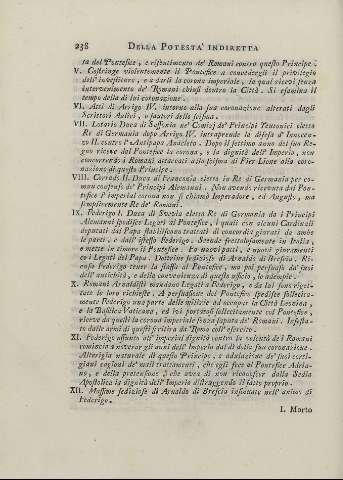 238 DELLA POTESTA' INDIRETTA
ta del Pontefice, e risentimento de' Romani contro questo Principe.
V. Costringe violentemente il Pontefice a concedergli il privilegio
dell'investiture, e a darli la corona imperiale, la quale riceve senza
intervenimento de' Romani chiusi dentro la Città. Si esamina il
tempo della di lui coronazione.
VI. Atti di Arrigo IV. intorno alla sua coronazione alterati dagli
Scrittori Aulici, o fautori dello scisma.
VII. Lotario Duca di Sassonia ne' Comizj de' Principi Teutonici eletto
Re di Germania dopo Arrigo IV. intraprende la difesa d' Innocenzo
II. contro l'Antipapa Anacleto. Dopo il settimo anno del suo Regno
riceve dal Pontefice la corona, e la dignità dell' Imperio, non
concorrendo i Romani attaccati allo scisma di Pier Lione alla coronazione
di questo Principe.
VIII. Corrado II. Duca di Franconia eletto in Re di Germania per comun
consenso de' Principi Alemanni. Non avendo ricevuta dal Pontefice
l' imperial corona non si chiamò Imperadore, ed Augusto, ma
semplicemente Re de' Romani.
IX. Federigo I. Duca di Svevia eletto Re di Germania da i Principi
Alemanni spedisce Legati al Pontefice, i quali con alcuni Cardinali
deputati dal Papa stabiliscono trattati di concordia giurati da ambe
le parti, e dall' istesso Federigo. Scende portentosamente in Italia,
e mette in timore il Pontefice. Fa nuovi patti, e nuovi giuramenti
co i Legati del Papa. Dottrine sediziose di Arnaldo di Brescia. Ricusa
Federigo tener la staffa al Pontefice, ma poi persuaso da' suoi
dell' antichità, e della convenienza di questo ufficio, lo adempie.
X. Romani Arnaldisti mandano Legati a Federigo, e da lui sono rigettate
le loro richieste. A persuasione del Pontefice spedisce sollecitamente
Federigo una parte delle milizie ad occupar la Città Leonina,
e la Basilica Vaticana, ed ivi portatosi sollecitamente col Pontefice,
riceve da quello la corona imperiale senza saputa de' Romani. Infestato
dalle armi di questi si ritira da Roma coll' esercito.
XI. Federigo assunto all' imperial dignità contro la volontà de' Romani
comincia a numerar gli anni dell' Imperio dal dì della sua coronazione.
Alterigia naturale di questo Principe, e adulazione de' suoi cortigiani
cagioni de' mali trattamenti, che egli fece al Pontefice Adriano,
e della pretensione che avea di non riconoscer dalla Sedia
Apostolica la dignità dell' Imperio distruggendo il fatto proprio.
XII. Massime sediziose di Arnaldo di Brescia insinuate nell' animo di
Federigo.
I. Morto